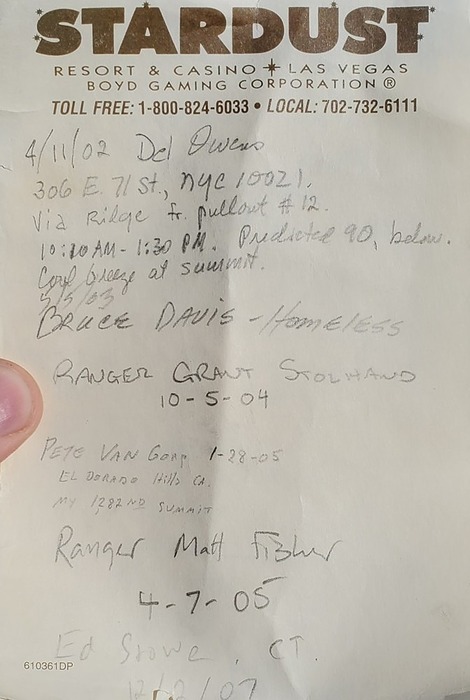 STARDUST
RESORT & CASINO LAS VEGAS
BOYD GAMING CORPORATION ®
TOLL FREE: 1-800-824-6033 • LOCAL: 702-732-6111
4/11/02 Del Owens
306 E. 71 St., NYC 10021.
Via Ridge fr. pullout #12.
10:10 AM - 1:30 PM. Predicted 90, below.
Cool breeze at summit.
5/5/03
BRUCE DAVIS - HOMELESS
RANGER GRANT STOLHAND
10-5-04
PETE VAN 1-28-05
EL DORADO Hills CA.
MY 1,282ND SUMMIT
Ranger Matt Fisher
4-7-05
Ed Stowe, CT.
610361DP
12/2/07